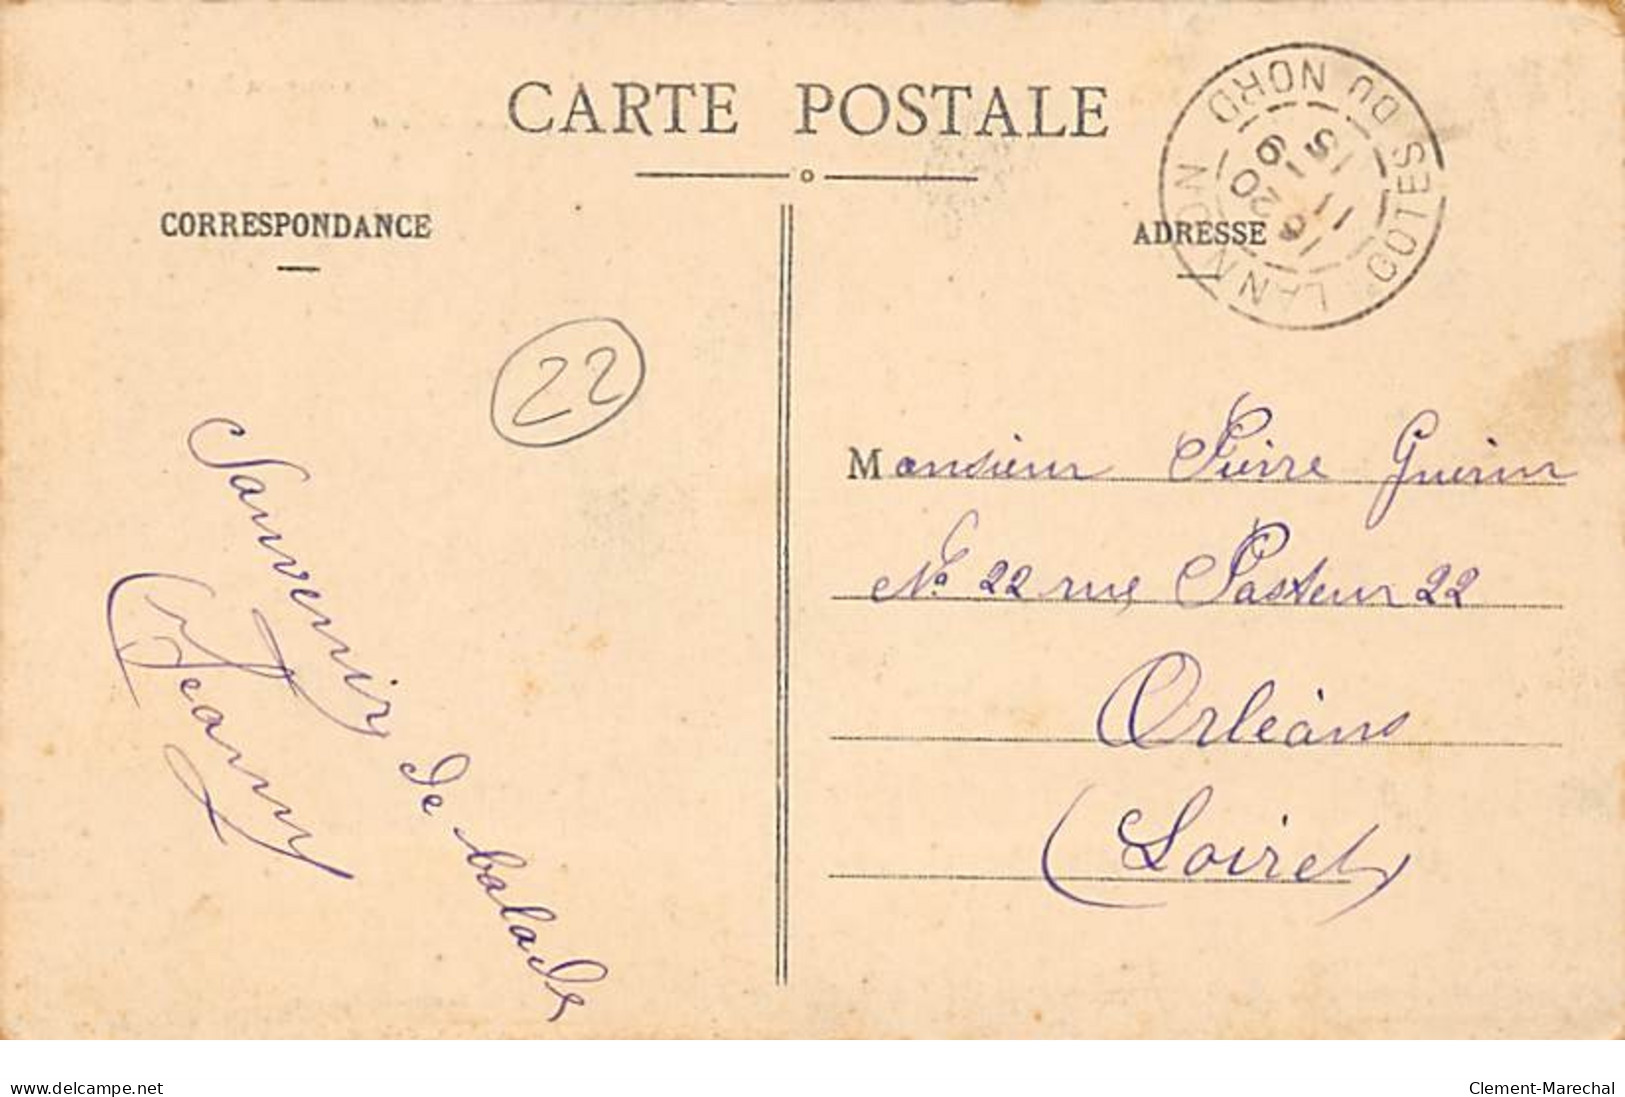 CARTE POSTALE
CORRESPONDANCE
ADRESSE
LANNION COTES DU NORD
22
Souvenir de balade
Jeanny
Monsieur Pierre Guerin
No 22 rue Pasteur 22
Orléans
(Loiret)
www.delcampe.net
Clement-Marechal